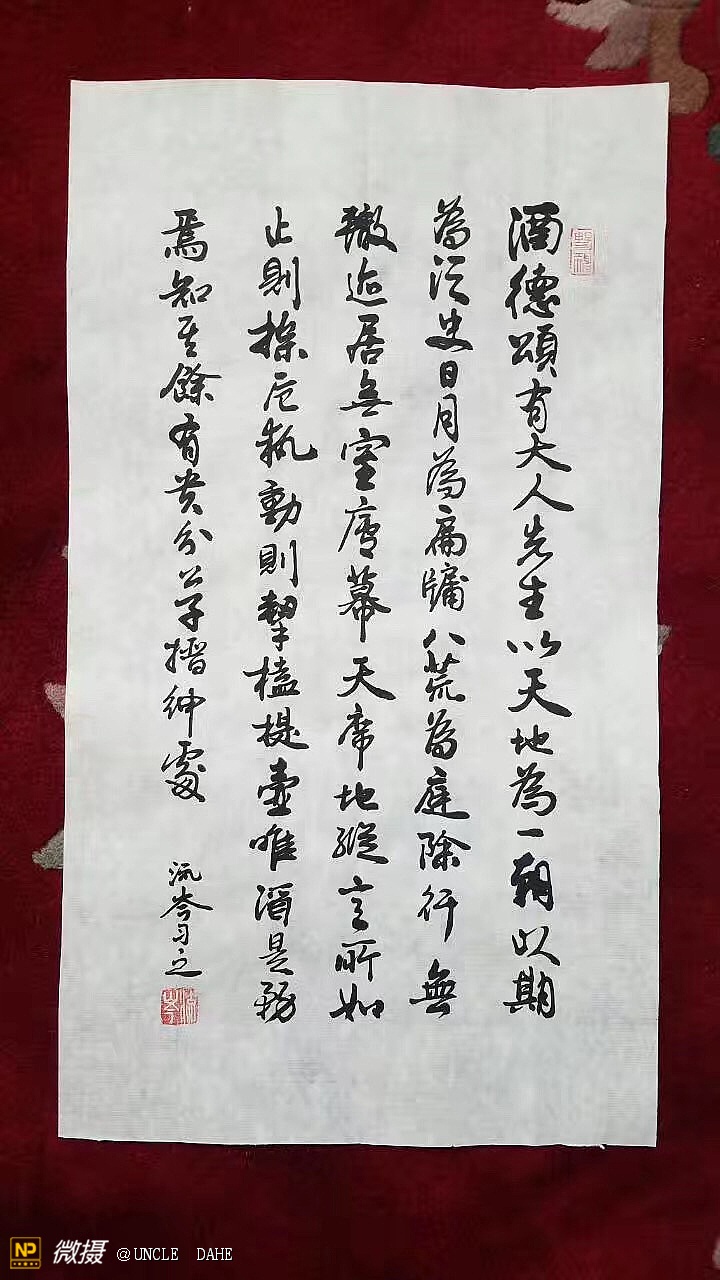 酒德頌有大人先生以天地為一朝以期
為須臾日月為扃牖八荒為庭除行無
轍迹居無室廬幕天席地縱意所如
止則操卮執動則挈榼提壺唯酒是務
焉知其餘有贵介公子搢紳處
流岑习之
NP 微摄 @UNCLE DAHE